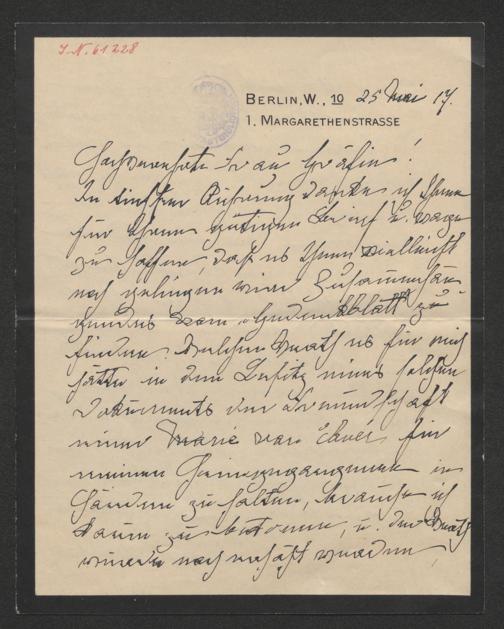 J. N. 61228
BERLIN, W., 10 25 Mai 17.
1. MARGARETHENSTRASSE
Hochverehrte Frau Gräfin!
In tiefster Rührung danke ich Ihnen
für Ihren gütigen Brief u. wage
zu hoffen, daß es Ihnen vielleicht
noch gelingen wird
von "Gedenkblatt" zu
finden. Welchen Werth es für mich
hätte in dem Besitz eines solchen
Dokuments der Freundschaft
einer Marie von Ebner für
meinen Heimgegangenen in
Händen zu halten, brauche ich
kaum zu betonen, u. der Werth
würde noch erhöht werden,